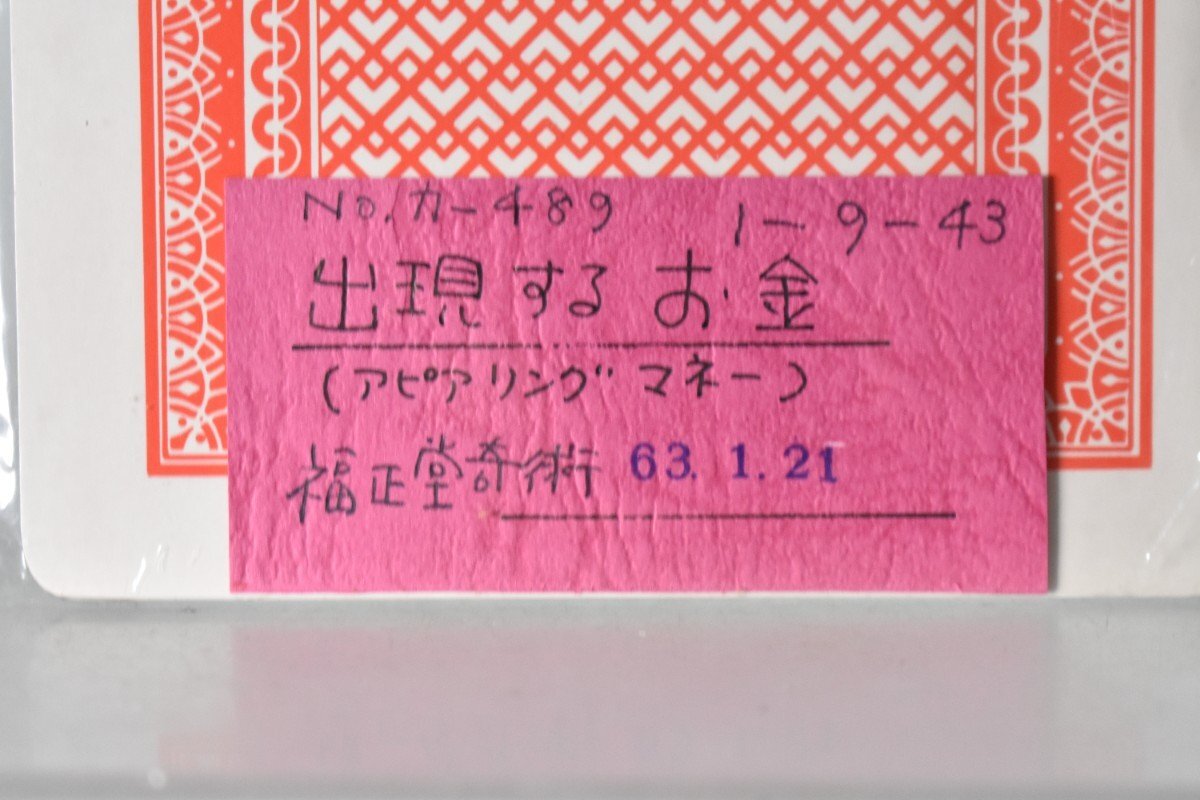 No.カ-489 1-9-43
出現するお金
(アピアリングマネー)
福正堂奇術 63.1.21